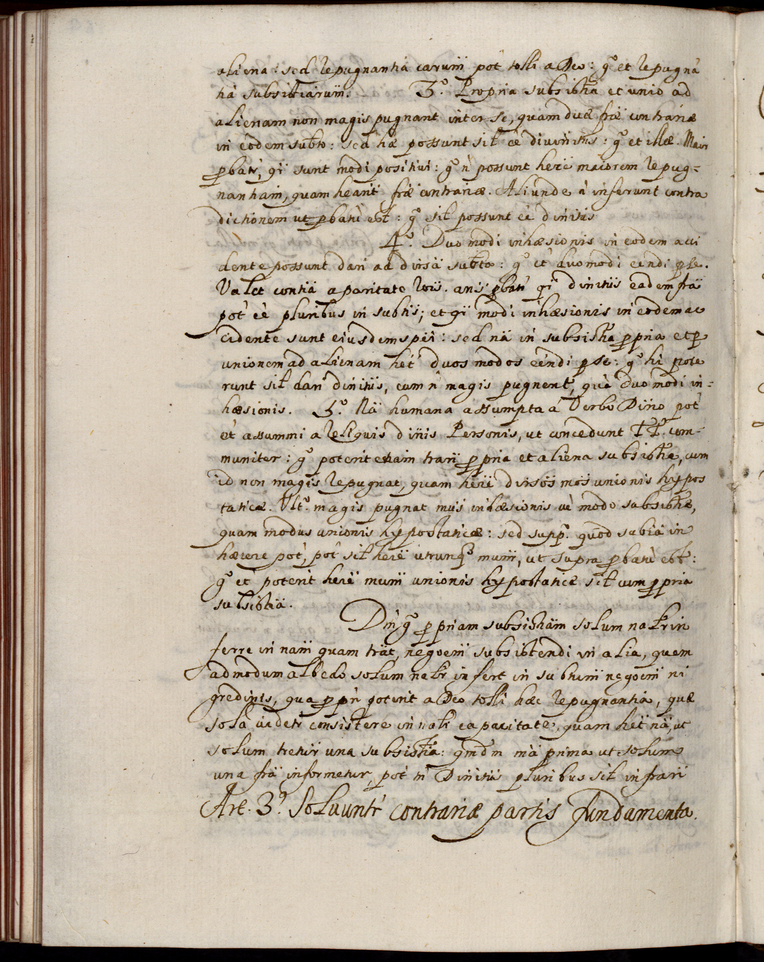 aliena: sed repugnantia earum̃ pot̃ tolli a Deo: g.º et repugnã
tia subsistiarum̃. 3.º Propria subsistia et unio ad
alienam non magis pugnant inter se, quam duæ fræ contrariæ
in eodem subto: sed hæ possunt sil eẽ divinitus: g.º et illæ Maior
pbatr̃, qĩ sunt modi positivi: g.º ñ possunt herẽ maiorem repug-
nantiam, quam heant fræ contrariæ. Aliunde ñ inferunt contra
dictionem ut pbatũ est: g.º sil possunt eẽ divinitus
4.º Duo modi inhæsionis in eodem acci
dente possunt dari ad diversa subta: g.º et duo modi eẽndi p se.
Valet contia a paritate rõis. añs pbatr̃ qĩ divinitus eadem fra
pot̃ eẽ pluribus in subtis; et qĩ modi inhæsionis in eodem ac
cidente sunt eiusdem spei: sed nã in subsistia ppria et p
unionem ad alienam het duos modos eẽndi p se: g.º hi pote
runt sil dari divinitus, cum ñ magis pugnent, quã duo modi in-
hæsionis. 5.º Nã humana assumpta a Verbo Divino pot̃
et assummi a reliquis divinis Personis, ut concedunt TT. com-
muniter: g.º poterit etiam trari ppria et aliena subsistia, cum
id non magis repugnat, quam herẽ diversos mõs unionis hypos
taticæ. Ult.º magis pugnat mũs inhæsionis cũ modo subsistiæ,
quam modus unionis hypostaticæ: sed supp.º quod subia in
hærere pot̃, pot̃ sil herẽ utrunq̃ mũm, ut supra pbatũ est:
g.º et poterit herẽ mum unionis hypostaticæ sil cum ppria
subsistia.
Dñ g.º ppriam subsistiam solum nalr in
ferre in nam quam trãt, negoem subsistendi in alia, quem
admodum albedo solum nalr infert in subtum negoem ni
gredinis, qua pp̃r poterit a Deo tolli hæc repugnantia, quæ
sola videtr̃ consistere in nali capacitate, quam het nã, ut
solum tretur una subsistia: qmdm mã prima ut solum
una frã informetur, pot̃ tñ Divinitus pluribus sil infrari
Art. 3.º Solvuntr̃ contrariæ partis fundamenta.